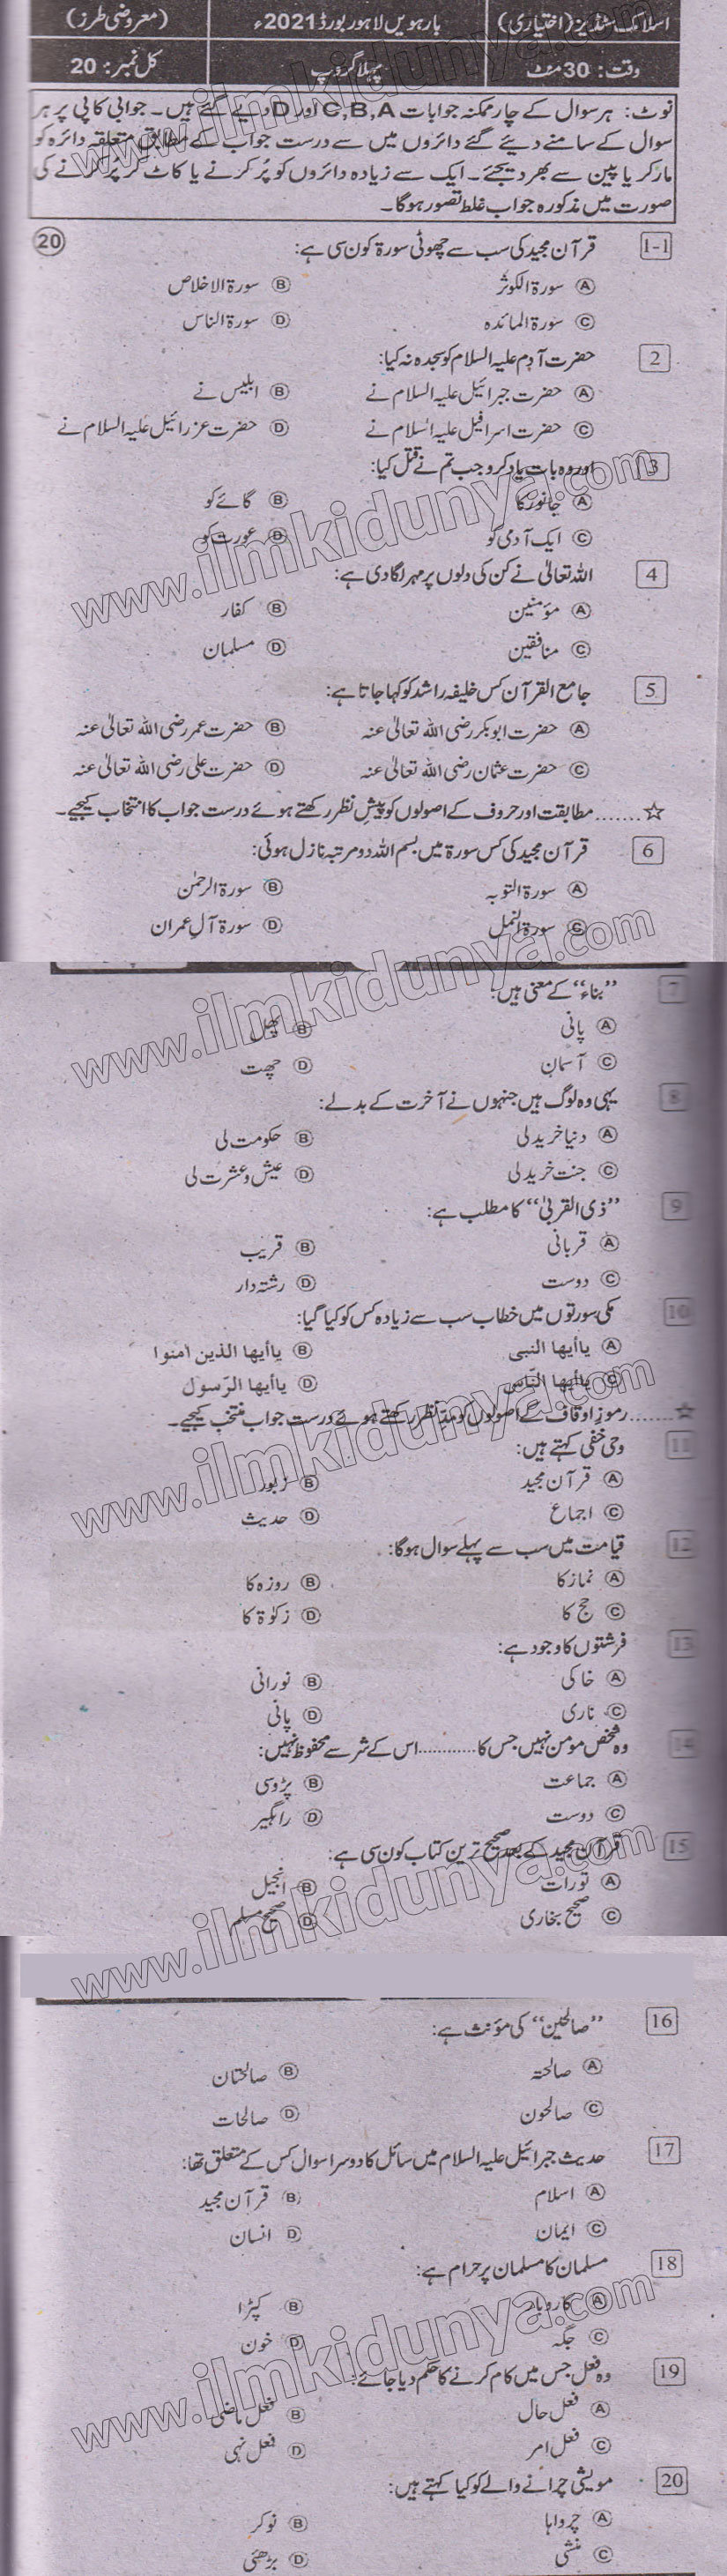 اسلامک سٹڈیز (اختیاری) بارہویں لاہور بورڈ 2021ء (معروضی طرز)
وقت: 30 منٹ پہلا گروپ کل نمبر: 20
نوٹ: ہر سوال کے چار ممکنہ جوابات C,B,A اور D دیے گئے ہیں۔ جوابی کاپی پر ہر
سوال کے سامنے دیئے گئے دائروں میں سے درست جواب کے مطابق متعلقہ دائرہ کو
مارکر یا پین سے بھر دیجئے۔ ایک سے زیادہ دائروں کو پُر کرنے یا کاٹ کر پُر کرنے کی
صورت میں مذکورہ جواب غلط تصور ہوگا۔
1-1 قرآن مجید کی سب سے چھوٹی سورۃ کون سی ہے: 20
A سورۃ الکوثر B سورۃ الاخلاص
C سورۃ المائدہ D سورۃ الناس
2 حضرت آدم علیہ السلام کو سجدہ نہ کیا:
A حضرت جبرائیل علیہ السلام نے B ابلیس نے
C حضرت اسرافیل علیہ السلام نے D حضرت عزرائیل علیہ السلام نے
3 اور وہ بات یاد کرو جب تم نے قتل کیا:
A جانور کا B گائے کو
C ایک آدمی کو D عورت کو
4 اللہ تعالیٰ نے کن کی دلوں پر مہر لگا دی ہے:
A مؤمنین B کفار
C منافقین D مسلمان
5 جامع القرآن کس خلیفہ راشد کو کہا جاتا ہے:
A حضرت ابوبکر رضی اللہ تعالیٰ عنہ B حضرت عمر رضی اللہ تعالیٰ عنہ
C حضرت عثمان رضی اللہ تعالیٰ عنہ D حضرت علی رضی اللہ تعالیٰ عنہ
☆....... مطابقت اور حروف کے اصولوں کو پیشِ نظر رکھتے ہوئے درست جواب کا انتخاب کیجیے۔
6 قرآن مجید کی کس سورۃ میں بسم اللہ دو مرتبہ نازل ہوئی:
A سورۃ التوبہ B سورۃ الرحمٰن
C سورۃ النمل D سورۃ آلِ عمران
7 ”بناء“ کے معنی ہیں:
A پانی B پھل
C آسمان D چھت
8 یہی وہ لوگ ہیں جنہوں نے آخرت کے بدلے:
A دنیا خرید لی B حکومت لی
C جنت خرید لی D عیش و عشرت لی
9 ”ذی القربیٰ“ کا مطلب ہے:
A قربانی B قریب
C دوست D رشتہ دار
10 مکی سورتوں میں خطاب سب سے زیادہ کس کو کیا گیا:
A یاأیھا النبی B یاأیھا الذین اٰمنوا
C یاأیھا النّاس D یاأیھا الرّسول
☆....... رموزِ اوقاف کے اصولوں کو مدِّ نظر رکھتے ہوئے درست جواب منتخب کیجیے۔
11 وحی خفی کہتے ہیں:
A قرآن مجید B زبور
C اجماع D حدیث
12 قیامت میں سب سے پہلے سوال ہوگا:
A نماز کا B روزہ کا
C حج کا D زکوٰۃ کا
13 فرشتوں کا وجود ہے:
A خاکی B نورانی
C ناری D پانی
14 وہ شخص مومن نہیں جس کا ........... اس کے شر سے محفوظ نہیں:
A جماعت B پڑوسی
C دوست D راہگیر
15 قرآن مجید کے بعد صحیح ترین کتاب کون سی ہے:
A تورات B انجیل
C صحیح بخاری D صحیح مسلم
16 ”صالحین“ کی مؤنث ہے:
A صالحتہ B صالحتان
C صالحون D صالحات
17 حدیث جبرائیل علیہ السلام میں سائل کا دوسرا سوال کس کے متعلق تھا:
A اسلام B قرآن مجید
C ایمان D انسان
18 مسلمان کا مسلمان پر حرام ہے:
A کاروبار B کپڑا
C جگہ D خون
19 وہ فعل جس میں کام کرنے کا حکم دیا جائے:
A فعل حال B فعل ماضی
C فعل امر D فعل نہی
20 مویشی چرانے والے کو کیا کہتے ہیں:
A چرواہا B نوکر
C منشی D بڑھئی
www.ilmkidunya.com
www.ilmkidunya.com
www.ilmkidunya.com
www.ilmkidunya.com
www.ilmkidunya.com
www.ilmkidunya.com